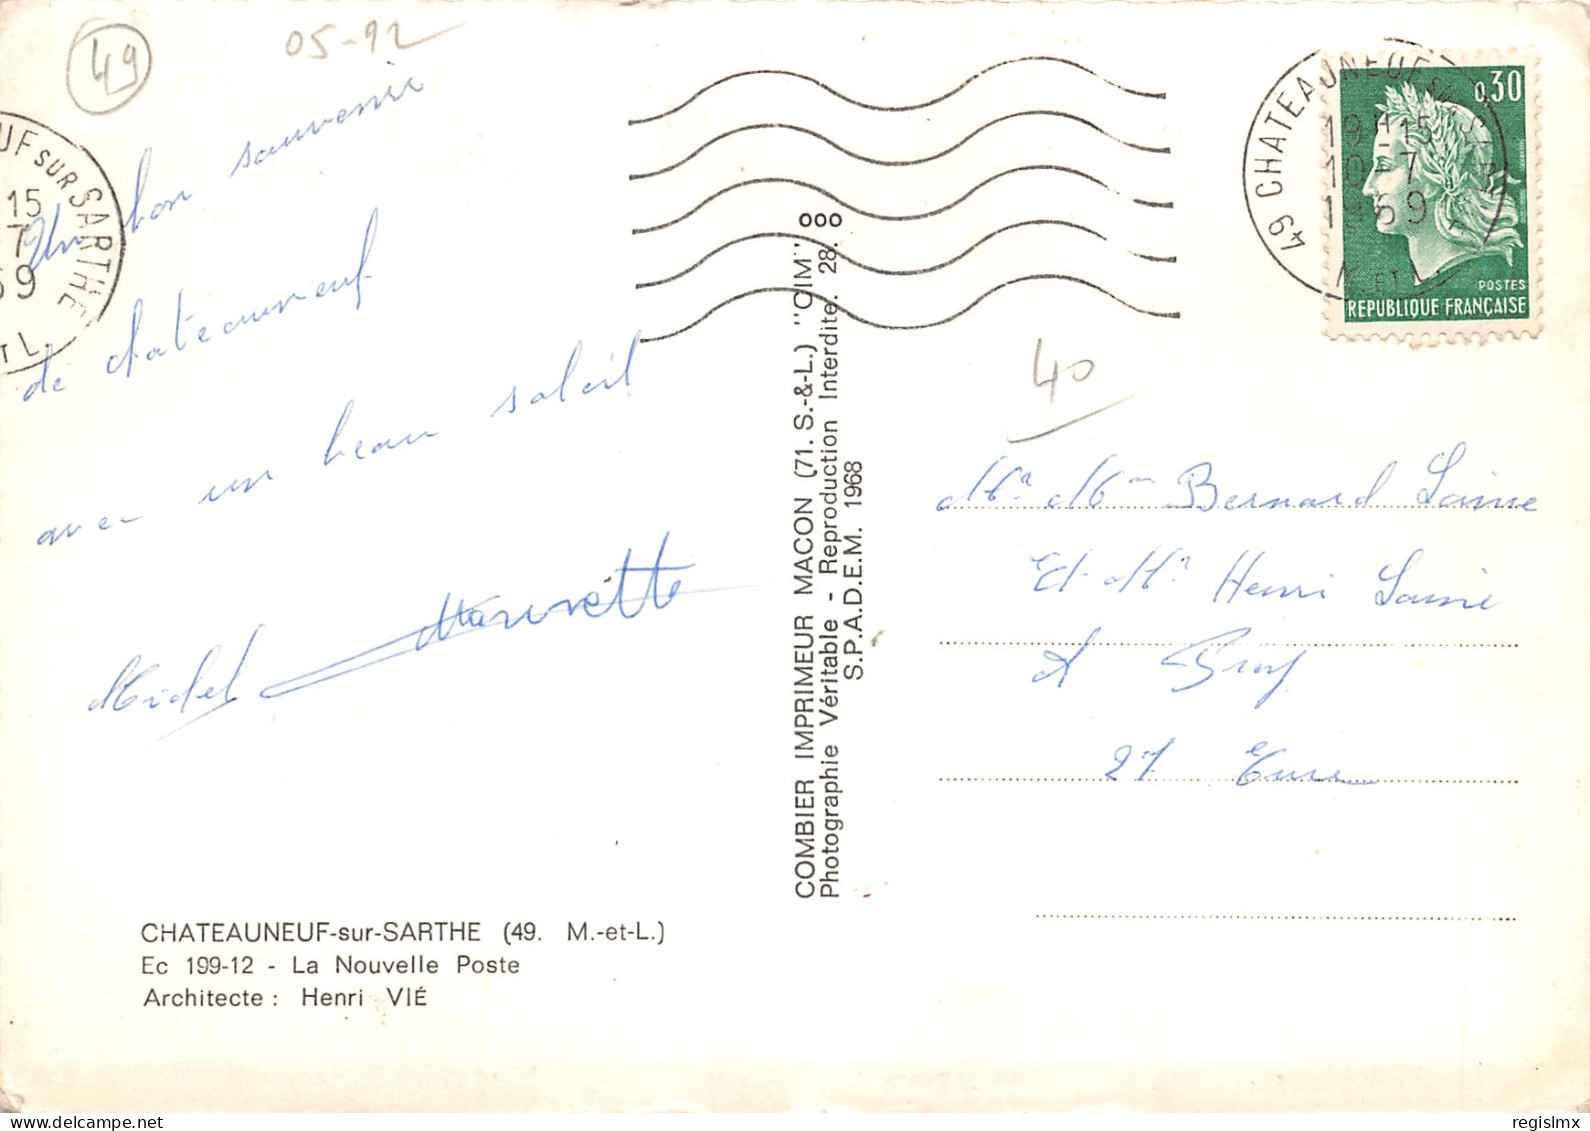 49
05-92
Un bon souvenir
de chateauneuf
avec un beau soleil
Michel Maurisette
UF SUR SARTHE
15
7
69
T L
CHATEAUNEUF-sur-SARTHE (49. M.-et-L.)
Ec 199-12 - La Nouvelle Poste
Architecte : Henri VIÉ
COMBIER IMPRIMEUR MACON (71. S.-&-L.) "CIM"
Photographie Véritable - Reproduction Interdite. 28. ooo
S.P.A.D.E.M. 1968
49 CHATEAUNEUF SUR SARTHE
19H15
10-7
1969
M. ET L.
0,30
POSTES
REPUBLIQUE FRANÇAISE
40
Mr Mme Bernard Laine
Et Mr Henri Laine
A Brey
27 Eure
regislmx